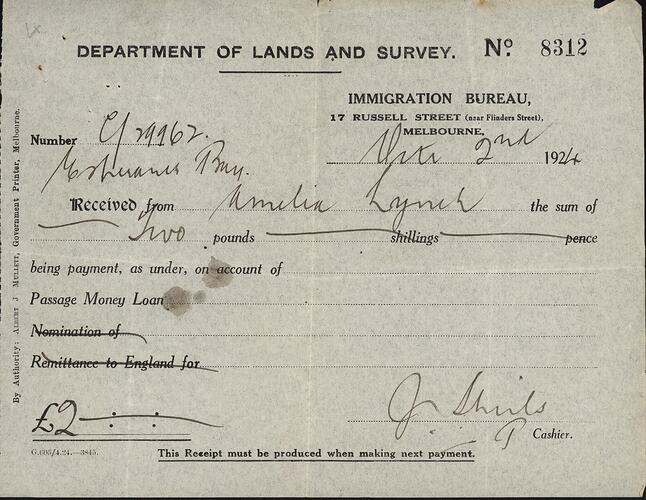 DEPARTMENT OF LANDS AND SURVEY. No. 8312
IMMIGRATION BUREAU,
17 RUSSELL STREET (near Flinders Street),
MELBOURNE,
Number C/29962.
2nd 1924
Bay.
Received from Amelia Lynch the sum of
Two pounds shillings pence
being payment, as under, on account of
Passage Money Loan
Nomination of
Remittance to England for
£2 - : - : -
J Shiels
Cashier.
G.605/4.24.—3845.
This Receipt must be produced when making next payment.
By Authority: ALBERT J MULLETT, Government Printer, Melbourne.